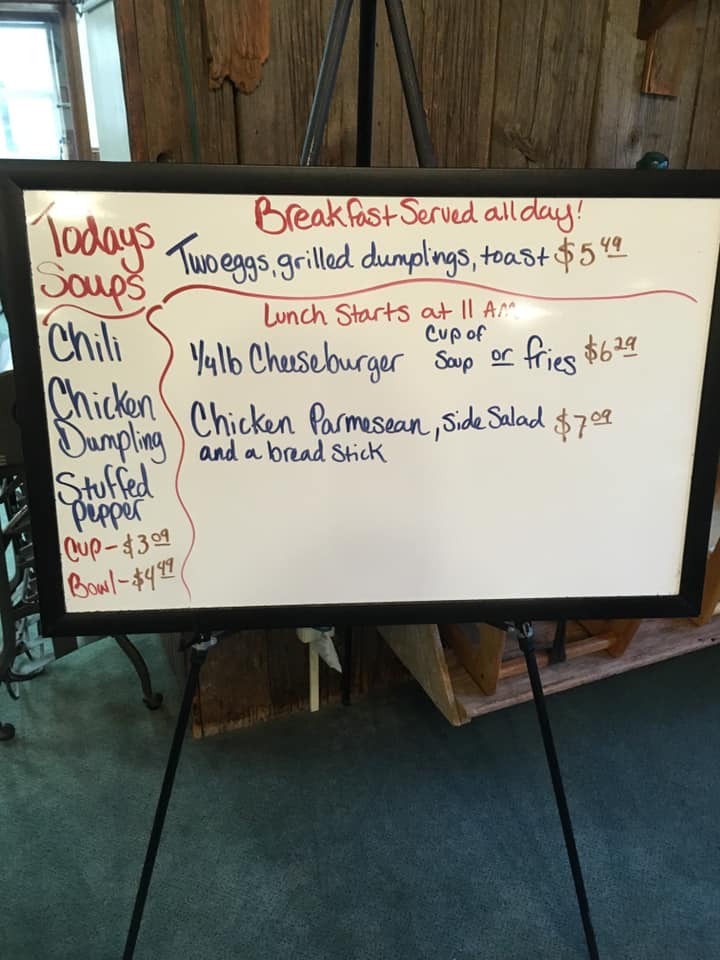 Todays
Soups
Chili
Chicken
Dumpling
Stuffed
pepper
Cup - $3.09
Bowl - $4.49
Breakfast Served all day!
Two eggs, grilled dumplings, toast $5.49
Lunch Starts at 11 AM
1/4 lb Cheeseburger Cup of Soup or fries $6.29
Chicken Parmesean, Side Salad $7.09
and a bread Stick